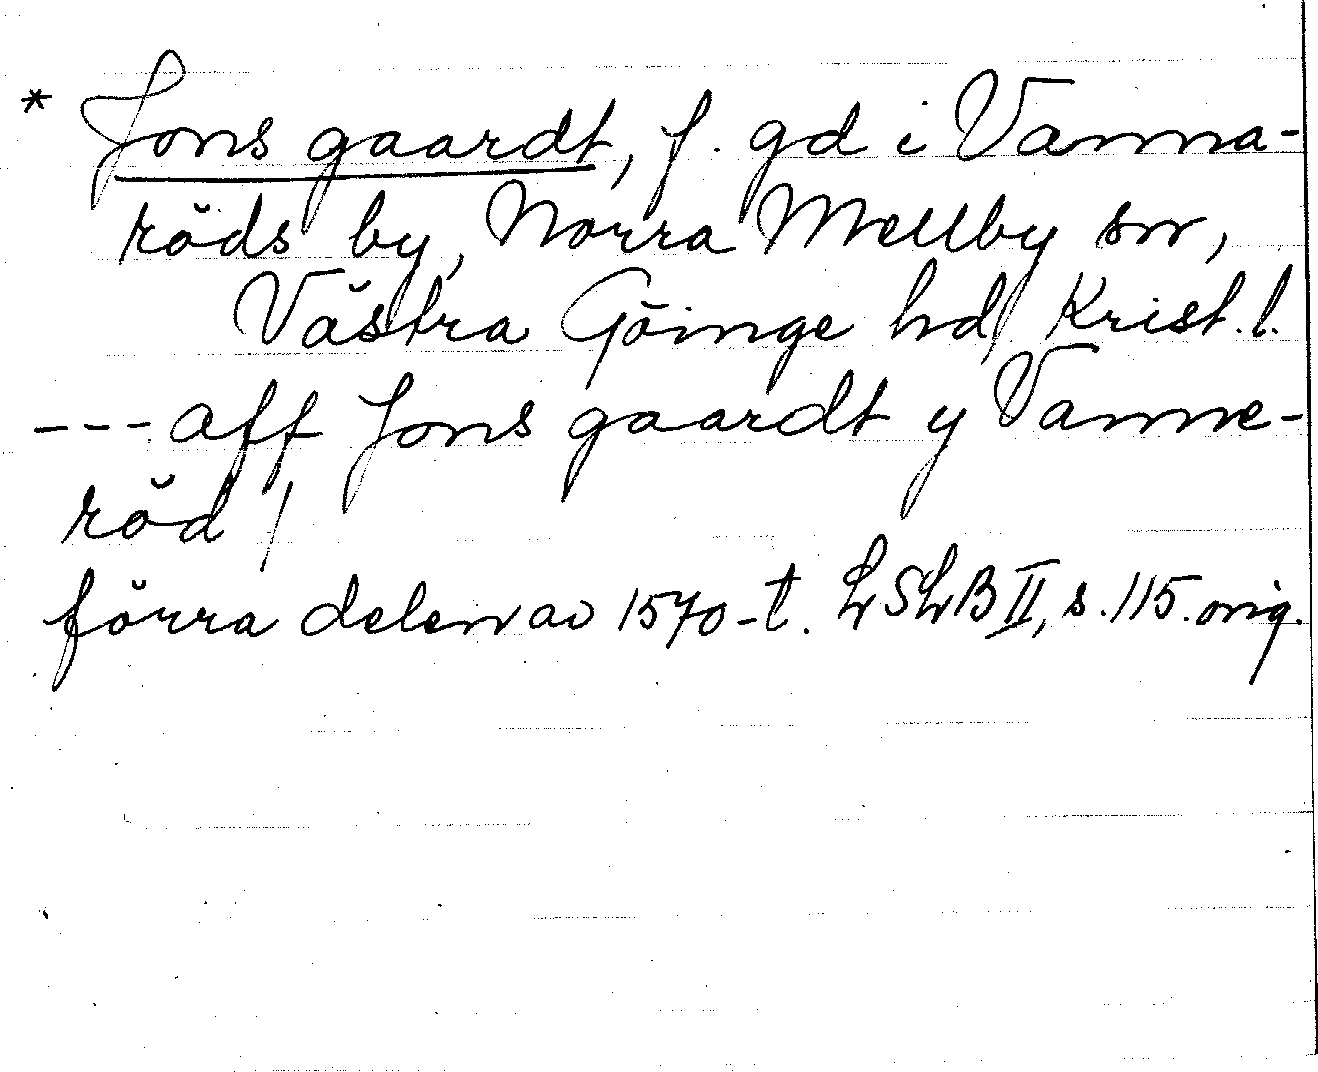 * Jons gaardt, f. gd i Vanna-
röds by, Norra Mellby sn,
Västra Göinge hd, Krist. l.
--- aff Jons gaardt y Vanne-
röd /
förra delen av 1570-t. LSLB II, s. 115. orig.